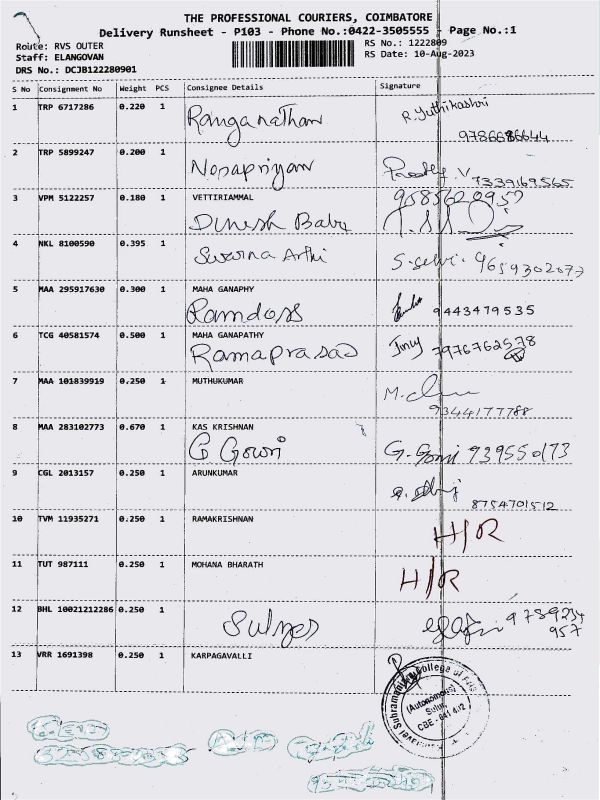 THE PROFESSIONAL COURIERS, COIMBATORE
Delivery Runsheet - P103 - Phone No.:0422-3505555 - Page No.:1
Route: RVS OUTER
RS No.: 1222809
Staff: ELANGOVAN
RS Date: 10-Aug-2023
DRS No.: DCJB122280901
S No Consignment No Weight PCS Consignee Details Signature
1 TRP 6717286 0.220 1 Ranganathan R. Yuthikashri
9786686644
2 TRP 5899247 0.200 1 V
7339169565
3 VPM 5122257 0.180 1 VETTIRIAMMAL 9585620957
Dinesh Babu
4 NKL 8100590 0.395 1 Swarna Arthi S. Selvi. 9659302077
5 MAA 295917630 0.300 1 MAHA GANAPHY
Ramdoss 9443479535
6 TCG 40581574 0.500 1 MAHA GANAPATHY
Ramaprasad Jincy 7976762578
7 MAA 101839919 0.250 1 MUTHUKUMAR
9344177788
8 MAA 283102773 0.670 1 KAS KRISHNAN
G Gowri G. Gowri 939550173
9 CGL 2013157 0.250 1 ARUNKUMAR
8754701512
10 TVM 11935271 0.250 1 RAMAKRISHNAN H/R
11 TUT 987111 0.250 1 MOHANA BHARATH H/R
12 BHL 10021212286 0.250 1 9789234
957
13 VRR 1691398 0.250 1 KARPAGAVALLI
(Autonomous)
Sulur,